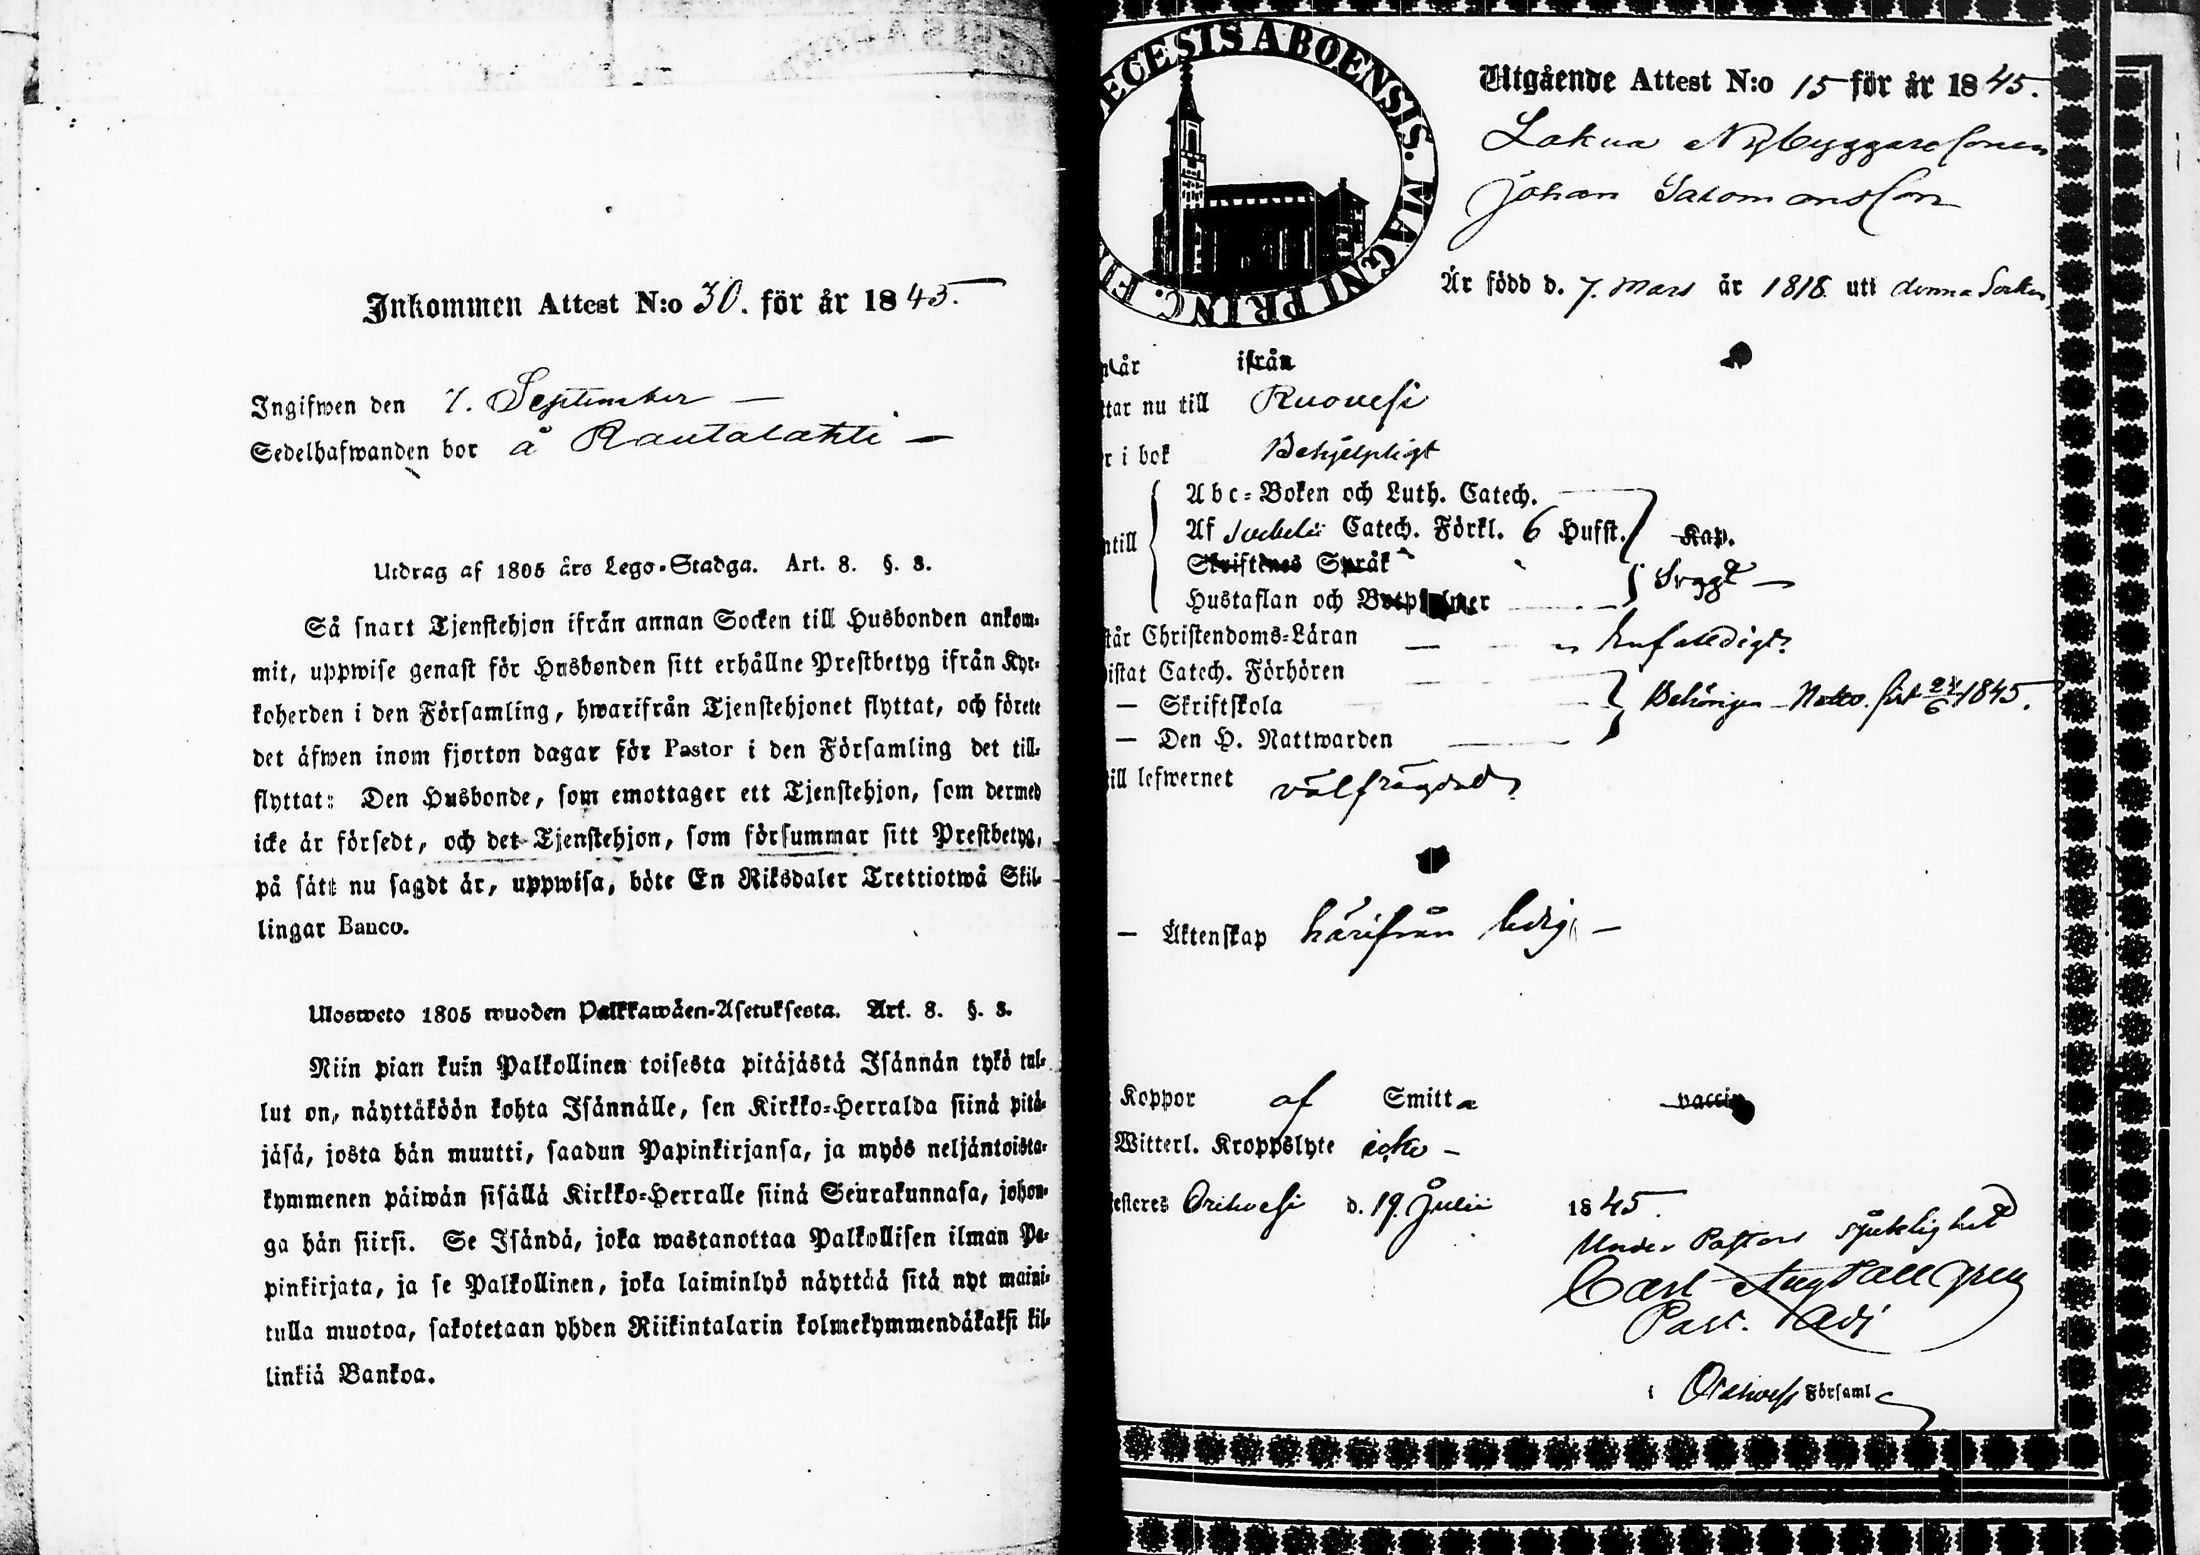 Inkommen Attest N:o 30. för år 1845.
Ingifwen den 7. September —
Sedelhafwanden bor å Rautalahti —
Utdrag af 1805 års Lego-Stadga. Art. 8. §. 8.
Så snart Tjenstehjon ifrån annan Socken till Husbonden ankom-
mit, uppwise genast för Husbonden sitt erhållne Prestbetyg ifrån Kyr-
koherden i den Församling, hwarifrån Tjenstehjonet flyttat, och förete
det äfwen inom fjorton dagar för Pastor i den Församling det till-
flyttat: Den Husbonde, som emottager ett Tjenstehjon, som dermed
icke är försedt, och det Tjenstehjon, som försummar sitt Prestbetyg,
på sätt nu sagdt är, uppwisa, böte En Riksdaler Trettiotwå Skil-
lingar Banco.
Ulosweto 1805 wuoden Palkkawäen-Asetuksesta. Art. 8. §. 8.
Niin pian kuin Palkollinen toisesta pitäjästä Isännän tykö tul-
lut on, näyttäköön kohta Isännälle, sen Kirkko-Herralda siinä pitä-
jäsä, josta hän muutti, saadun Papinkirjansa, ja myös neljäntoista-
kymmenen päiwän sisällä Kirkko-Herralle siinä Seurakunnasa, johon-
ga hän siirsi. Se Isändä, joka wastanottaa Palkollisen ilman Pa-
pinkirjata, ja se Palkollinen, joka laiminlyö näyttää sitä nyt maini-
tulla muotoa, sakotetaan yhden Riikintalarin kolmekymmendäkaksi kil-
linkiä Bankoa.
ECESIS ABOENSIS. MAGNI PRINC. FI
Utgående Attest N:o 15 för år 1845.
Lakua Nybyggaresonen
Johan Salomonsson
Är född d. 7. Mars år 1818 uti denna Socken
år ifrån
ttar nu till Ruovesi
r i bok Behjelpligt
Abc-Boken och Luth. Catech.
ntill Af Svebelii Catech. Förkl. 6 Hufst. Kap.
Skriftenes Språk
Hustaflan och Botpsalmer Svagt —
tår Christendoms-Läran — enfaldigt
istat Catech. Förhören
— Skriftskola Behörigen — Nattv. sist 24/6 1845.
— Den H. Nattwarden
till lefwernet välfrägdad
— Äktenskap härifrån ledig —
Koppor af Smitta vaccin
Witterl. Kroppslyte icke —
esteres Orihvesi d. 19. Julii 1845.
Under Pastors sjuklighet
Carl Aug Tallgren
Past. Adj
i Orihvesi Församl